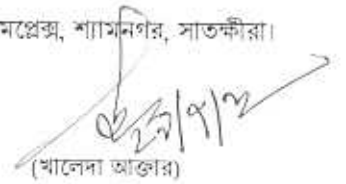 মপ্লেক্স, শ্যামনগর, সাতক্ষীরা।
(খালেদা আক্তার)